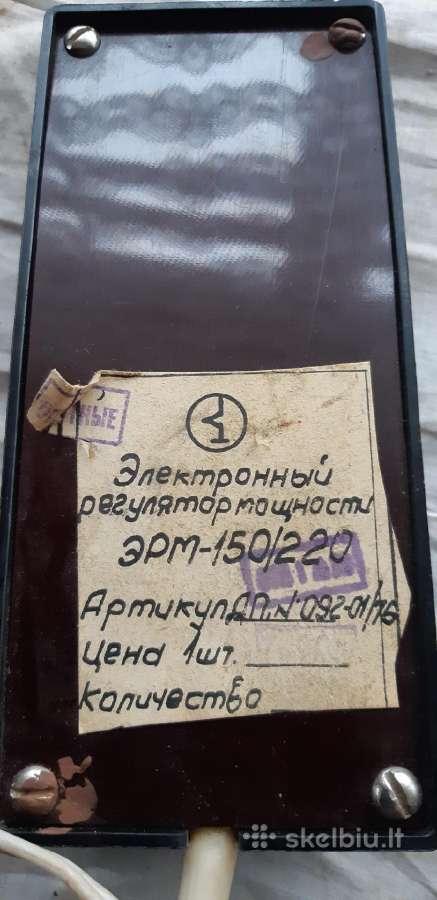 Электронный
регулятор мощности
ЭРМ-150/220
Артикул ДП.№092-01/76
Цена 1шт.
Количество
skelbiu.lt